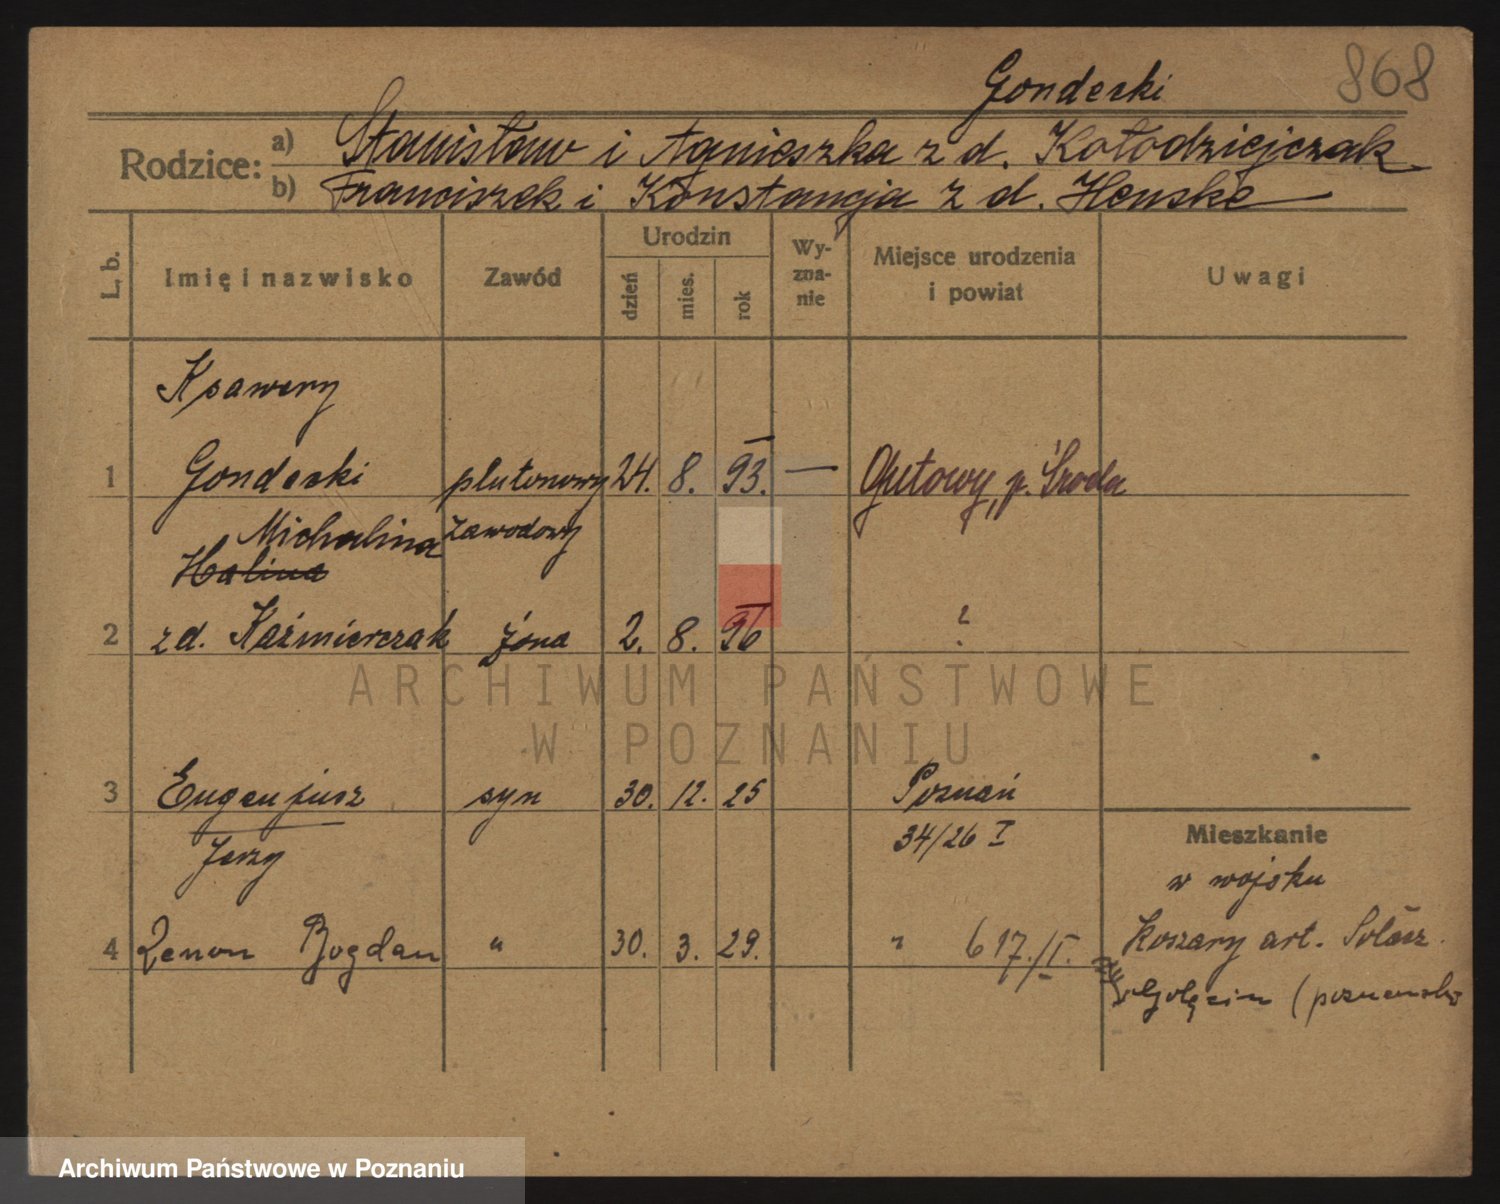 868
Gondecki
Rodzice: a) Stanisław i Agnieszka z d. Kołodziejczak
b) Franciszek i Konstancja z d. Henske
L. b. Imię i nazwisko Zawód Urodzin dzień mies. rok Wyzna-nie Miejsce urodzenia i powiat Uwagi
Ksawery
1 Gondecki plutonowy 24. 8. 93. — Gutowy, p. Środa
Michalina zawodowy
Halina
2 z d. Kaźmierczak żona 2. 8. 96 ?
ARCHIWUM PAŃSTWOWE
W POZNANIU
3 Eugenjusz syn 30. 12. 25 Poznań
Jerzy 34/26 I
Mieszkanie
w wojsku
4 Zenon Bogdan " 30. 3. 29. " 617./I. Koszary art. Sołacz.
Golęcin (poznański
Archiwum Państwowe w Poznaniu